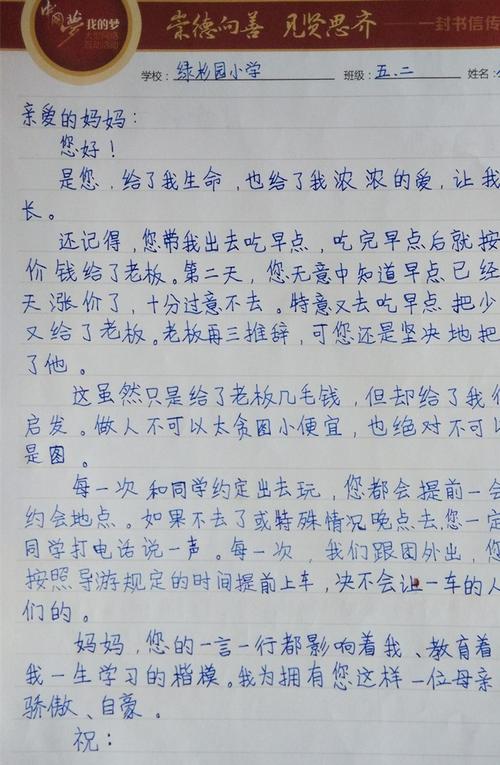 中国梦 我的梦
崇德向善 见贤思齐 一封书信传
学校：绿杉园小学 班级：五.二 姓名：
亲爱的妈妈：
您好！
是您，给了我生命，也给了我浓浓的爱，让我
长。
还记得，您带我出去吃早点，吃完早点后就按
价钱给了老板。第二天，您无意中知道早点已经
天涨价了，十分过意不去。特意又去吃早点把少
又给了老板。老板再三推辞，可您还是坚决地把
了他。
这虽然只是给了老板几毛钱，但却给了我们
启发。做人不可以太贪图小便宜，也绝对不可以
是图。
每一次和同学约定出去玩，您都会提前一会
约会地点。如果不去了或特殊情况晚点去，您一定
同学打电话说一声。每一次，我们跟团外出，您
按照导游规定的时间提前上车，决不会让一车的人
们的。
妈妈，您的一言一行都影响着我、教育着
我一生学习的楷模。我为拥有您这样一位母亲
骄傲、自豪。
祝：